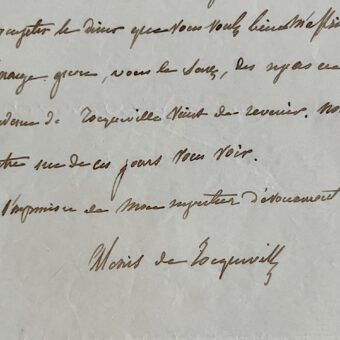 accepter le diner que vous voulez bien m'offrir
mange guere, vous le savez, des repas en
adame de Tocqueville vient de revenir. No
tre un de ces jours vous voir.
l'expression de mon sincère dévouement
Alexis de Tocqueville